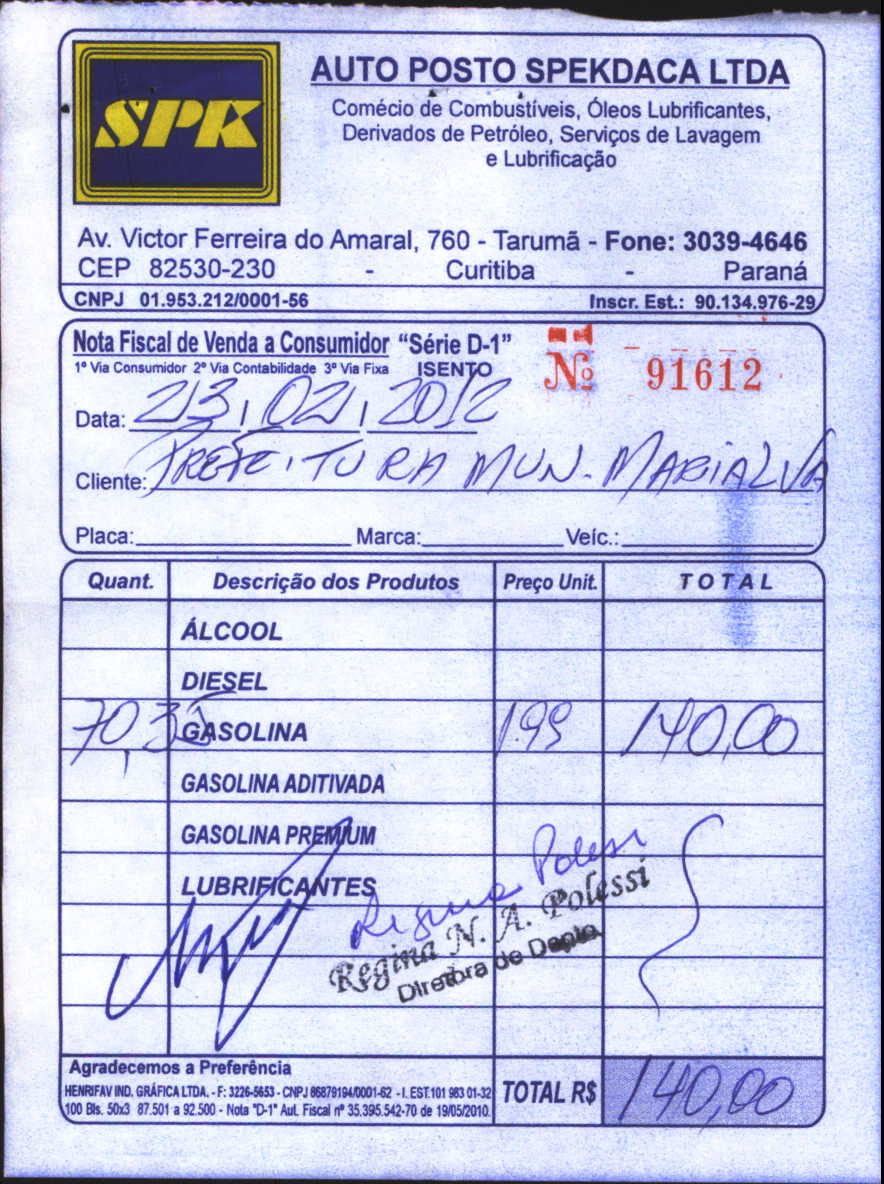 SPK
AUTO POSTO SPEKDACA LTDA
Comécio de Combustíveis, Óleos Lubrificantes,
Derivados de Petróleo, Serviços de Lavagem
e Lubrificação
Av. Victor Ferreira do Amaral, 760 - Tarumã - Fone: 3039-4646
CEP 82530-230 - Curitiba - Paraná
CNPJ 01.953.212/0001-56 Inscr. Est.: 90.134.976-29
Nota Fiscal de Venda a Consumidor "Série D-1"
1ª Via Consumidor 2ª Via Contabilidade 3ª Via Fixa ISENTO
Nº 91612
Data: 23/02/2012
Cliente: PREFEITURA MUN. MARIALVA
Placa: Marca: Veíc.:
Quant. Descrição dos Produtos Preço Unit. TOTAL
ÁLCOOL
DIESEL
70,35 GASOLINA 1.99 140,00
GASOLINA ADITIVADA
GASOLINA PREMIUM
LUBRIFICANTES
Regina Polessi
Regina N. A. Polessi
Diretora de Depto.
Agradecemos a Preferência
HENRIFAV IND. GRÁFICA LTDA. - F: 3226-5653 - CNPJ 86879194/0001-62 - I. EST.101 983 01-32
100 Bls. 50x3 87.501 a 92.500 - Nota "D-1" Aut. Fiscal nº 35.395.542-70 de 19/05/2010.
TOTAL R$ 140,00